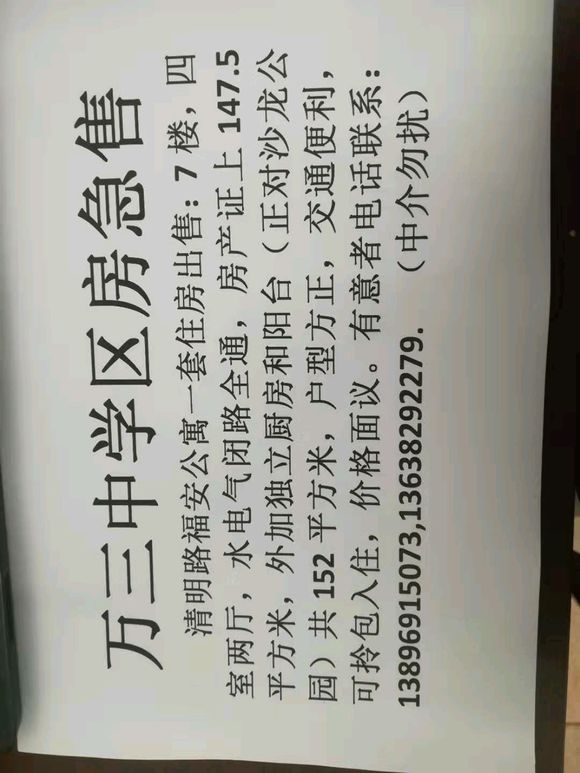 万三中学区房急售
清明路福安公寓一套住房出售：7 楼，四
室两厅，水电气闭路全通，房产证上 147.5
平方米，外加独立厨房和阳台（正对沙龙公
园）共 152 平方米，户型方正，交通便利，
可拎包入住，价格面议。有意者电话联系：
13896915073,13638292279.（中介勿扰）